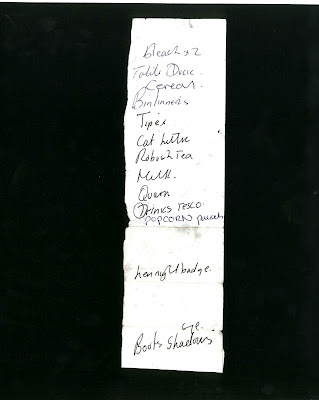 Bleach x2
Toilet Duck.
Cereal.
Binliners
Tipex
Cat litter
Roibosh Tea
Milk.
Quorn
Drinks Tesco.
POPCORN
hen night badge.
eye.
Boots Shadows